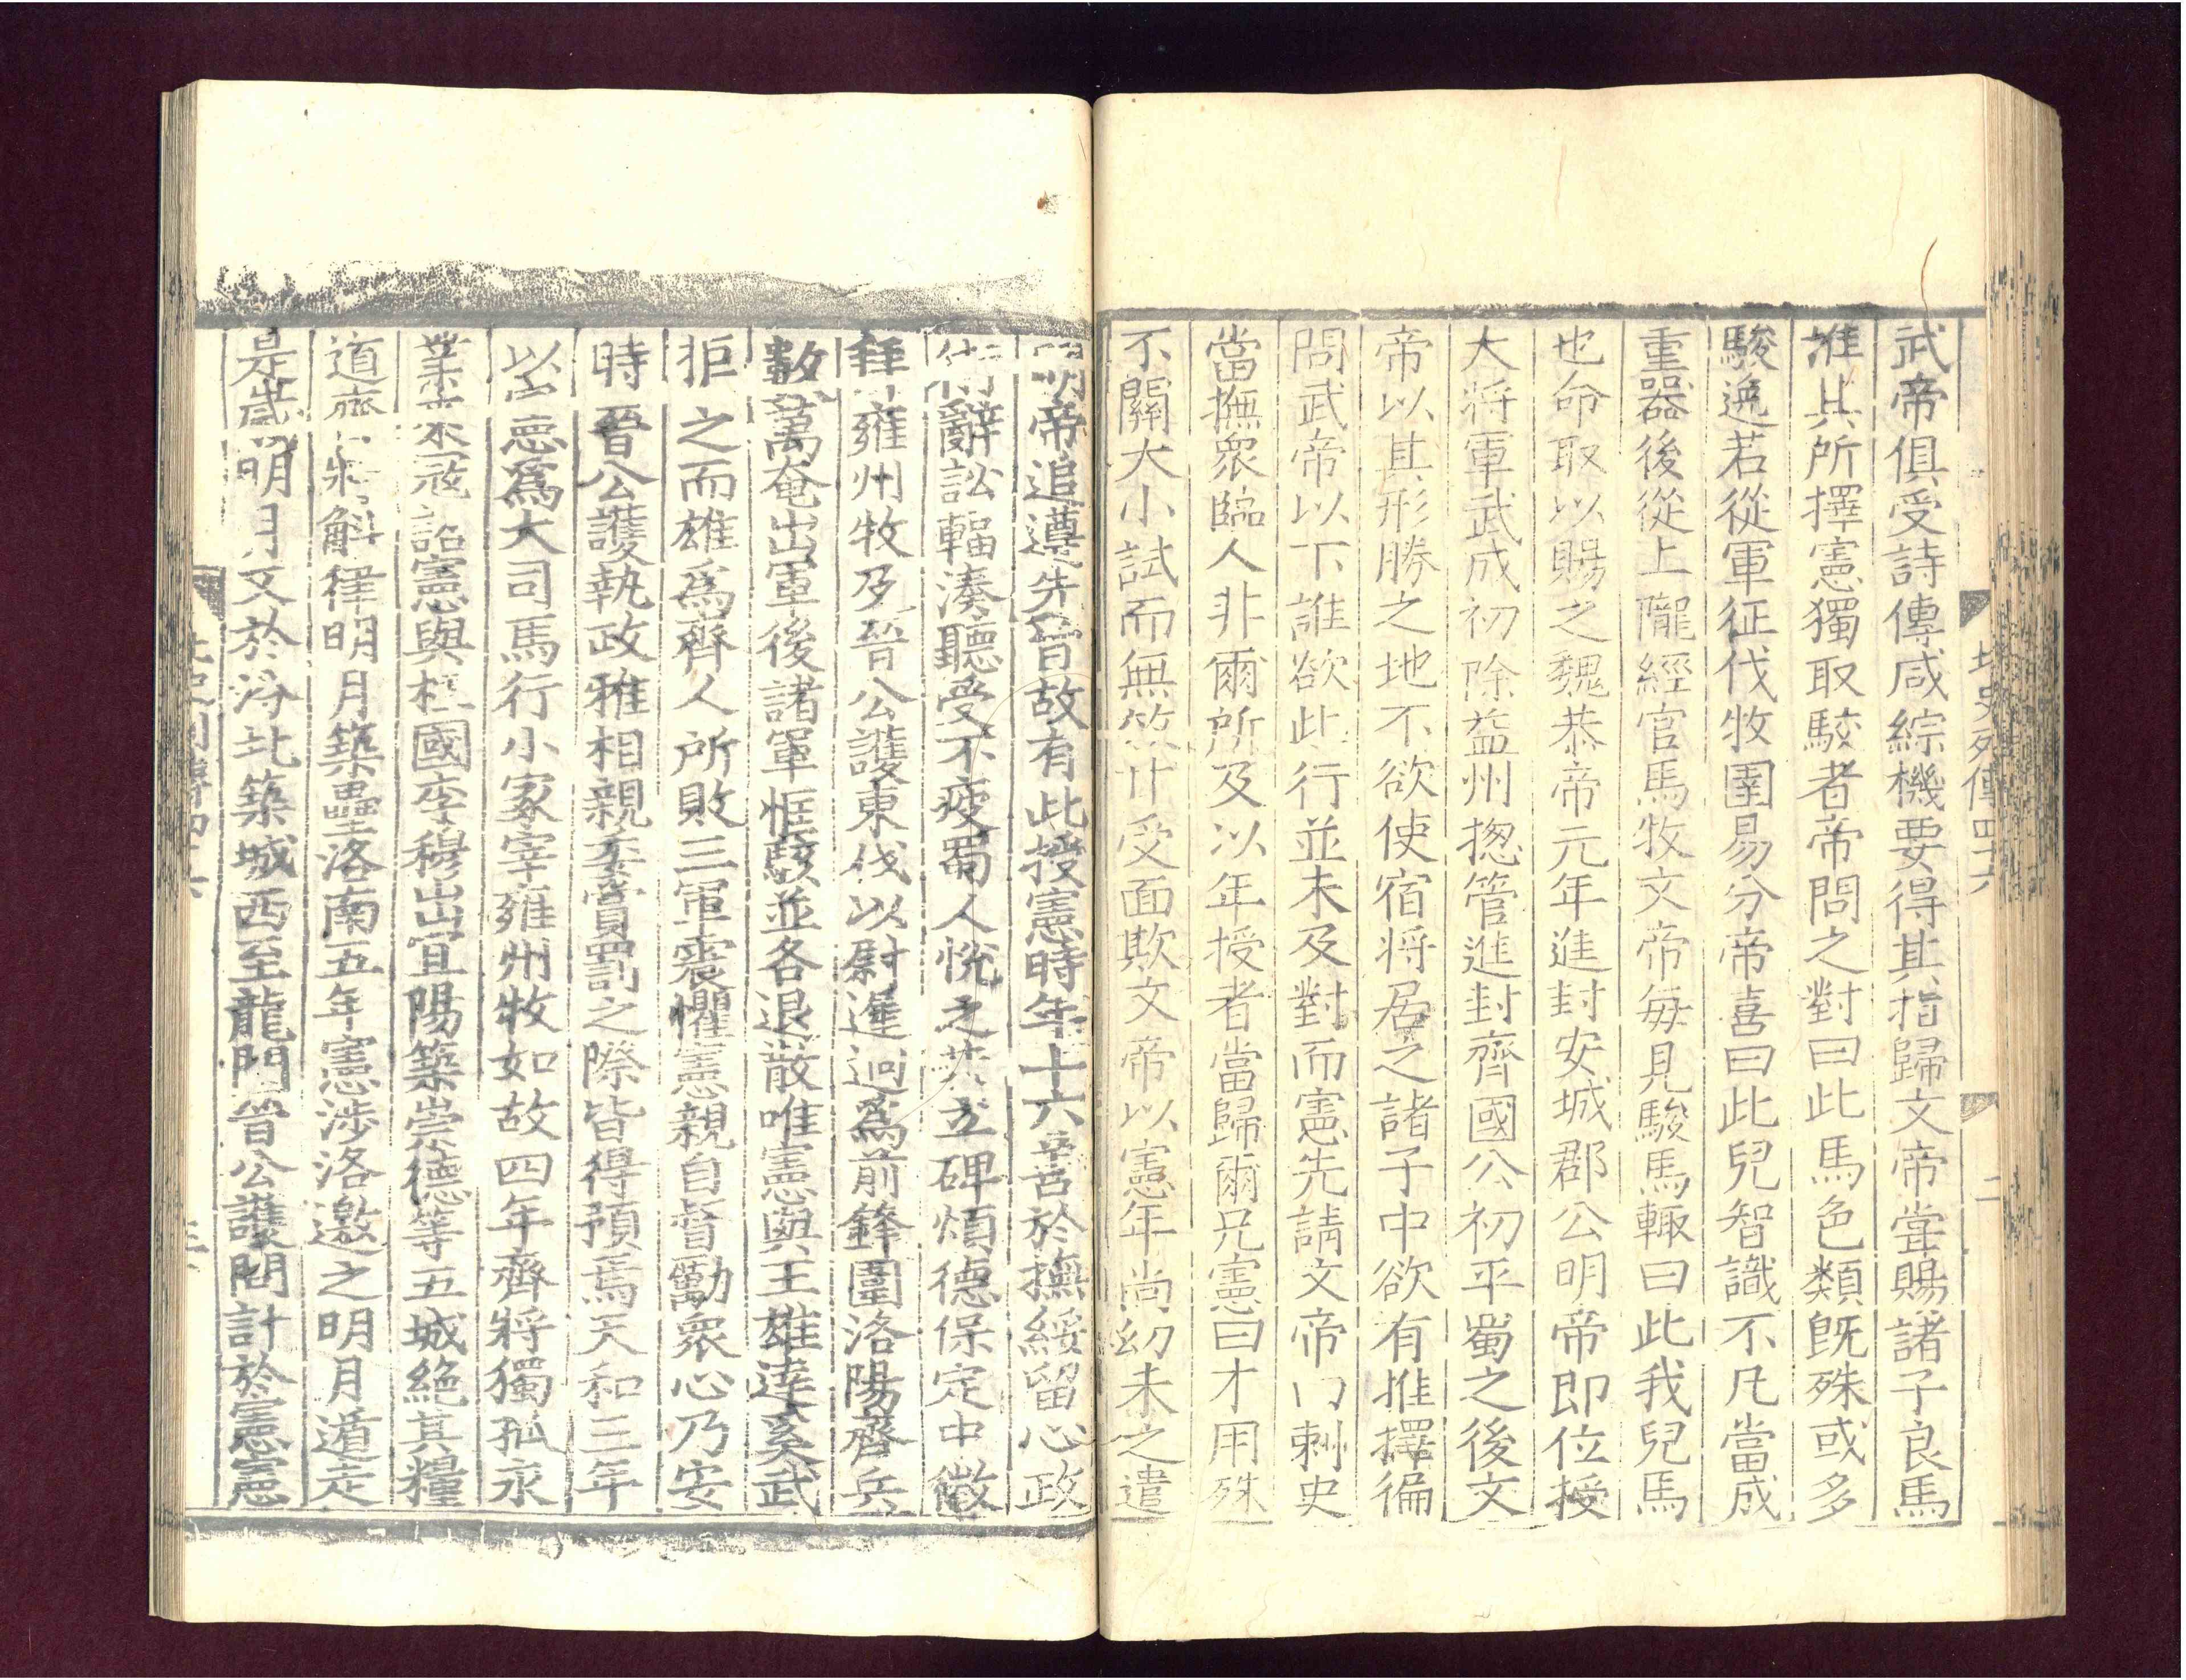 武帝俱受詩傳咸綜機要得其指歸文帝甞賜諸子良馬
惟其所擇憲獨取駮者帝問之對曰此馬色類旣殊或多
駿逸若從軍征伐牧圉易分帝喜曰此兒智識不凡當成
重器後從上隴經官馬牧文帝每見駿馬輒曰此我兒馬
也命取以賜之魏恭帝元年進封安城郡公明帝即位授
大將軍武成初除益州揔管進封齊國公初平蜀之後文
帝以其形勝之地不欲使宿將居之諸子中欲有推擇徧
問武帝以下誰欲此行並未及對而憲先請文帝曰刺史
當撫衆臨人非爾所及以年授者當歸爾兄憲曰才用殊
不關大小試而無效甘受面欺文帝以憲年尚幼未之遣
北史列傳四十六
二
明帝追遵先旨故有此授憲時年十六善於撫綏留心政
術辭訟輻湊聽受不疲蜀人悅之共立碑頌德保定中徵
拜雍州牧及晉公護東伐以尉遲迥爲前鋒圍洛陽齊兵
數萬奄出軍後諸軍恇駭並各退散唯憲與王雄達奚武
拒之而雄爲齊人所斃三軍震懼憲親自督勵衆心乃安
時晉公護執政雅相親委賞罰之際皆得預焉天和三年
以憲爲大司馬行小冢宰雍州牧如故四年齊將獨孤永
業來寇詔憲與柱國李穆出宜陽築崇德等五城絕其糧
道齊將斛律明月築壘洛南五年憲涉洛邀之明月遁走
是歲明月又於汾北築城西至龍門晉公護問計於憲憲
北史列傳四十六
三